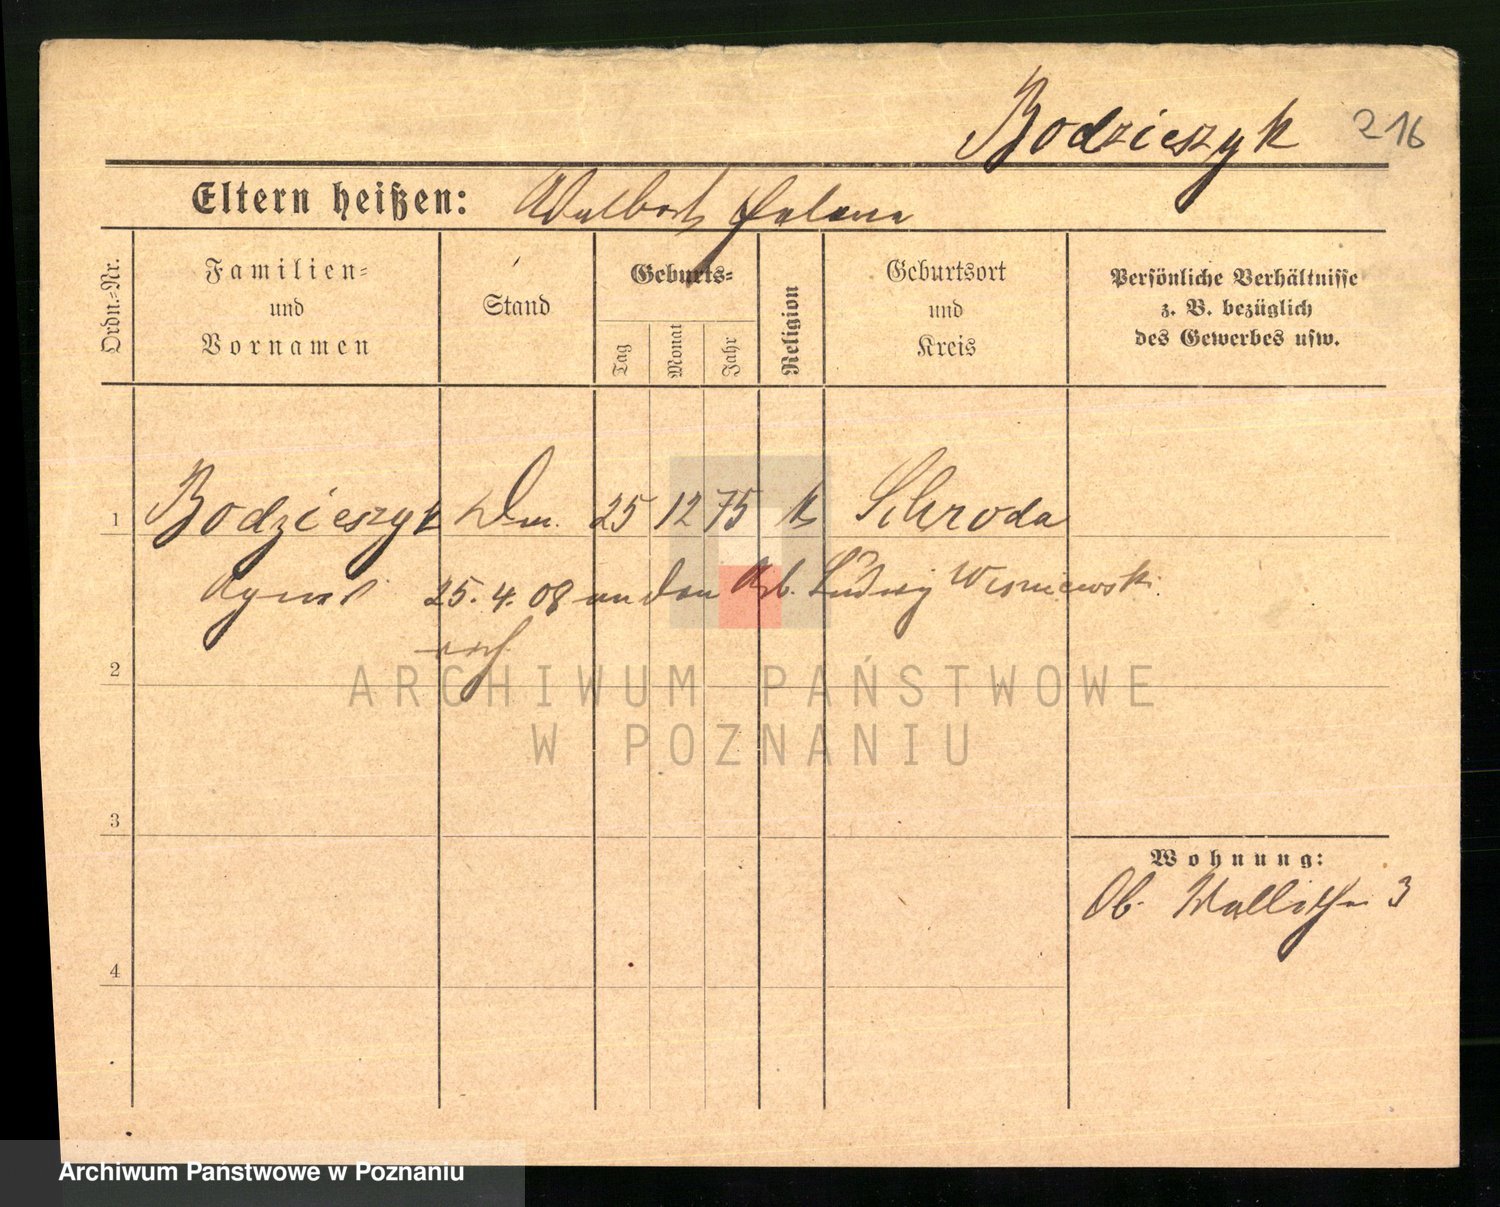 Bodzieszyk 216
Eltern heißen: Adalbert Helena
Ordn.-Nr.
Familien-
und
Vornamen
Stand
Geburts-
Tag
Monat
Jahr
Religion
Geburtsort
und
Kreis
Persönliche Verhältnisse
z. B. bezüglich
des Gewerbes usw.
1 Bodzieszyk 25 12 75 k Schroda
Agnes 25. 4. 08 an den Arb. Ludwig Wisniewski
verh.
2
3
4
Wohnung:
Ob. Wallischei 3
ARCHIWUM PAŃSTWOWE
W POZNANIU
Archiwum Państwowe w Poznaniu